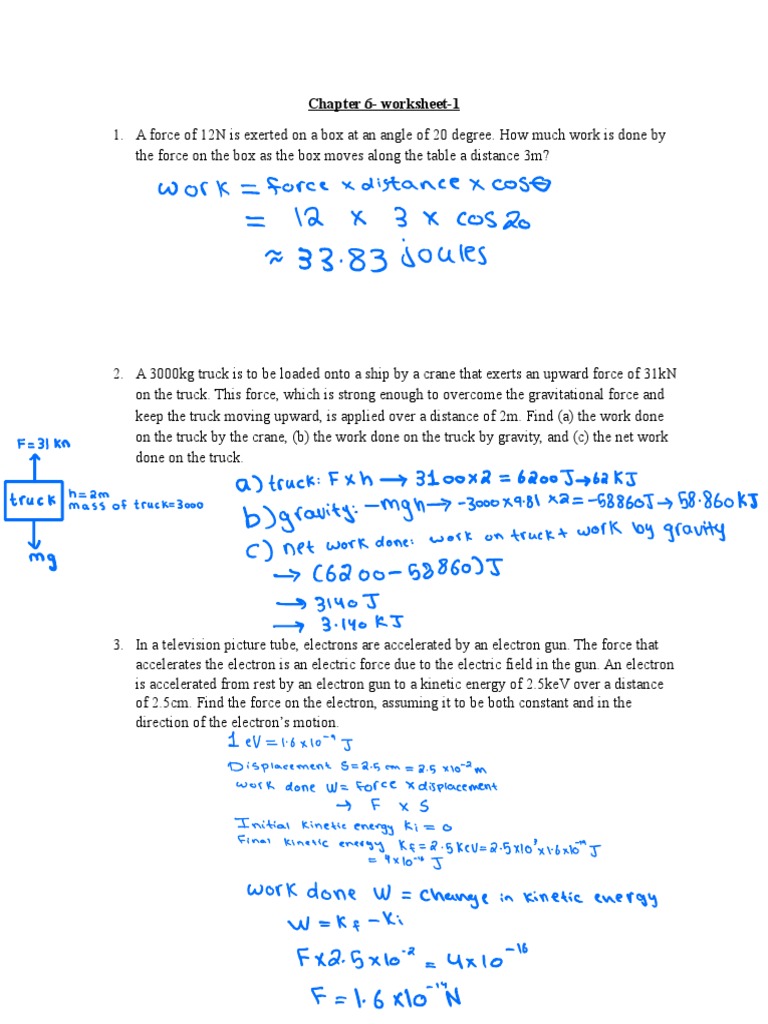 Chapter 6- worksheet-1
1. A force of 12N is exerted on a box at an angle of 20 degree. How much work is done by
the force on the box as the box moves along the table a distance 3m?
work = force x distance x cosθ
= 12 x 3 x cos 20
≈ 33.83 joules
2. A 3000kg truck is to be loaded onto a ship by a crane that exerts an upward force of 31kN
on the truck. This force, which is strong enough to overcome the gravitational force and
keep the truck moving upward, is applied over a distance of 2m. Find (a) the work done
on the truck by the crane, (b) the work done on the truck by gravity, and (c) the net work
done on the truck.
F=31 kn
truck
h=2m
mass of truck=3000
mg
a) truck: F x h → 3100x2 = 6200 J → 62 KJ
b) gravity: -mgh → -3000 x 9.81 x2 = -58860J → 58.860 KJ
c) net work done: work on truck + work by gravity
→ (6200 - 58860) J
→ 3140 J
→ 3.140 KJ
3. In a television picture tube, electrons are accelerated by an electron gun. The force that
accelerates the electron is an electric force due to the electric field in the gun. An electron
is accelerated from rest by an electron gun to a kinetic energy of 2.5keV over a distance
of 2.5cm. Find the force on the electron, assuming it to be both constant and in the
direction of the electron's motion.
1 eV = 1.6 x10⁻ J
Displacement S=2.5 cm = 2.5 x10⁻² m
work done W= Force x displacement
→ F x S
Initial kinetic energy Ki = 0
Final kinetic energy Kf = 2.5 KeV = 2.5 x10³ x 1.6 x10⁻ J
= 4x10⁻ J
work done W = change in kinetic energy
W = Kf - Ki
F x 2.5 x10⁻² = 4x10⁻¹⁶
F = 1.6 x10⁻¹⁴ N